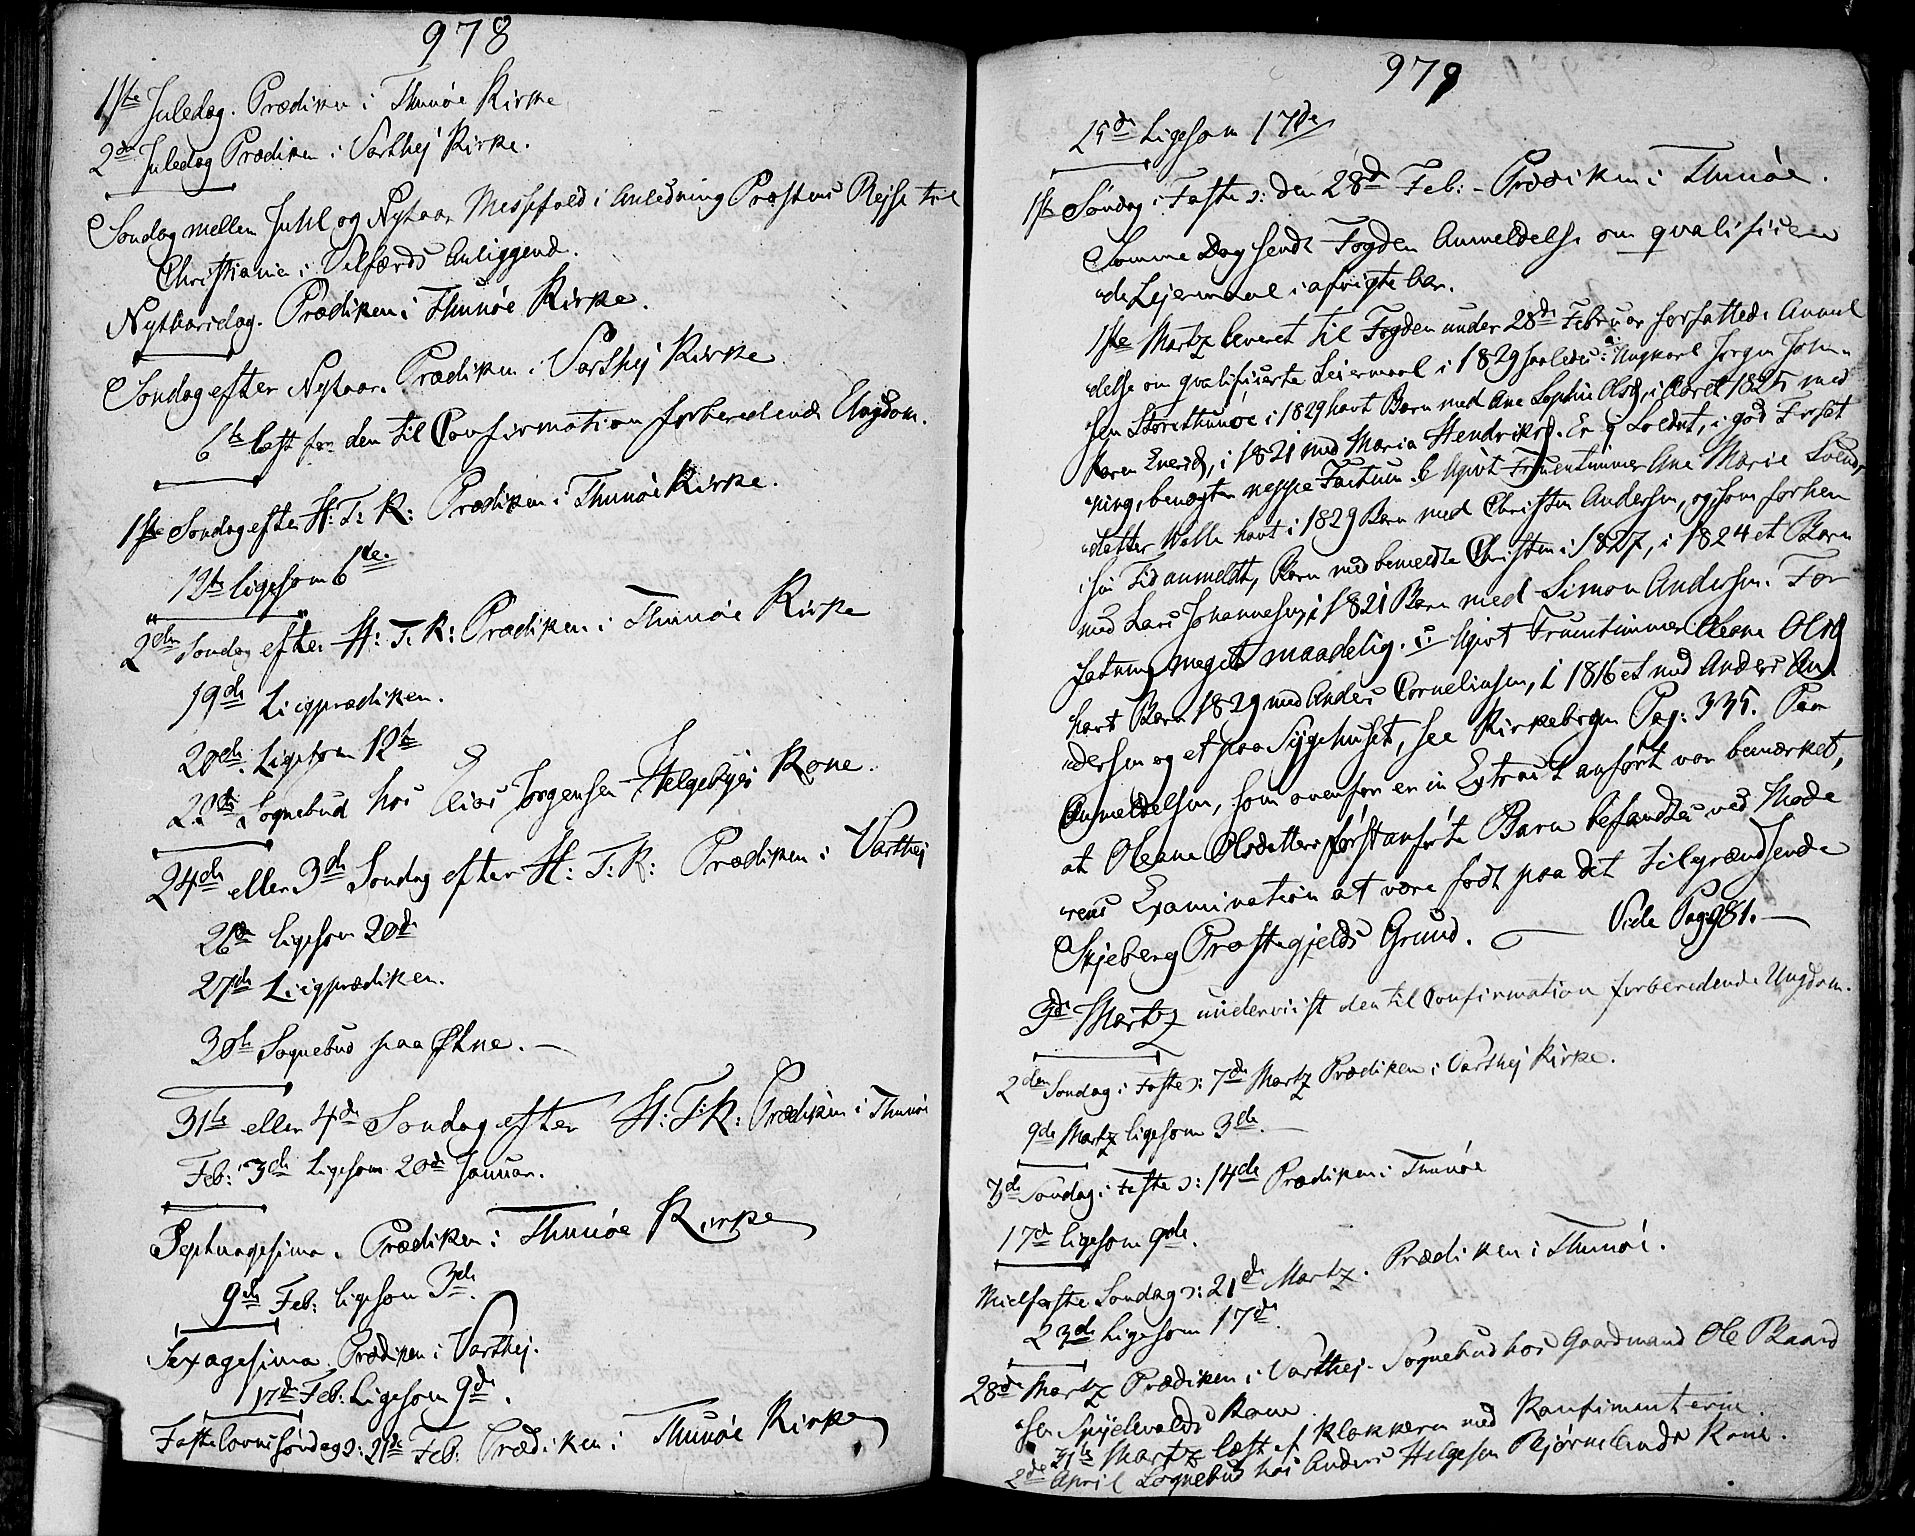 978
1ste Juledag. Prædiken i Thunøe Kirke
2den Juledag Prædiken i Varthej Kirke.
Søndag mellem Juhl og Nytaar Messefald i Anledning Præstens Rejse til
Christiania i Velfærds Anliggende.
Nytaarsdag. Prædiken i Thunøe Kirke.
Søndag efter Nytaar. Prædiken i Varthej Kirke
6te læst for den til Confirmation forberedende Ungdom.
1ste Søndag efter H: T: K: Prædiken i Thunøe Kirke.
12te ligesom 6de.
2den Søndag efter H: T: K: Prædiken i Thunøe Kirke
19de Liigprædiken.
20de. Ligesom 12te
Sognebud hos Elias Jørgensen Helgebyes Kone.
24de eller 3de Søndag efter H: T: K: Prædiken i Varthej
26de ligesom 20de
27de Liigprædiken.
30te Sognebud paa Økne. —
31te eller 4de Søndag efter H: T: K: Prædiken i Thunøe
Feb: 3de Ligesom 20de Januar.
Septuagesima. Prædiken i Thunøe Kirke
9de Feb: ligesom 3de.
Sexagesima Prædiken i Varthej.
17de Feb: Ligesom 9de.
Fastelavns Søndag ɔ: 21de Feb: Prædiken i Thunøe Kirke
979
25de Ligesom 17de
1ste Søndag i Faste ɔ: den 28de Feb: - Prædiken i Thunøe.
Samme Dag sendt Fogden Anmeldelse om qvalificeren
de Lejermaal i afvigte Aar.
1ste Martz leveret til Fogden under 28de Februar forfattede Anmel
delse om qvalificerte Leiermaal i 1829 saaledes: a Ungkarl Jørgen Johan
sen Storethunøe i 1829 havt Barn med Ane Sophie Olsd, i Aaret 1825 med
Karen Enersd, i 1821 med Maria Hendriksd. Er ej Soldat, i god Forfat
ning, benægter neppe Factum. b Ugivt Fruentimmer Ane Marie Svends
datter Walle havt i 1829 Barn med Christen Andersen, og som forhen
i sin Tid anmeldt, Barn med bemeldte Christen i 1827, i 1824 et Barn
med Lars Johannesen, i 1821 Barn med Simon Andersen. For
fatning meget maadelig. c Ugivt Fruentimmer Oleane Olsd
havt Barn 1829 med Anders Corneliussen, i 1816 et med Anders An
dersen og et paa Sygehuset, see Kirkebogen Pag: 335. Paa
Anmeldelsen, som ovenfor er in Extract anført var bemærket,
at Oleane Olsdatters først anførte Barn befandtes ved Mode
rens Examination at være født paa det tilgrændsende
Skjeberg Præstegjelds Grund. — Vide Pag 981. —
3de Martz underviist den til Confirmation forberedende Ungdom.
2den Søndag i Faste ɔ: 7de Martz Prædiken i Varthej Kirke.
9de Martz ligesom 3de. —
3de Søndag i Faste ɔ: 14de Prædiken i Thunøe
17de ligesom 9de.
Midfaste Søndag ɔ: 21de Martz. Prædiken i Thunøe.
23de Ligesom 17de.
28de Martz Prædiken i Varthej. Sognebud hos Gaardmand Ole Baard
sen Kone
31te Martz læst af Klokkeren med Konfirmanterne.
2de April Sognebud hos Anders Helgesen Bjørnelands Kone.